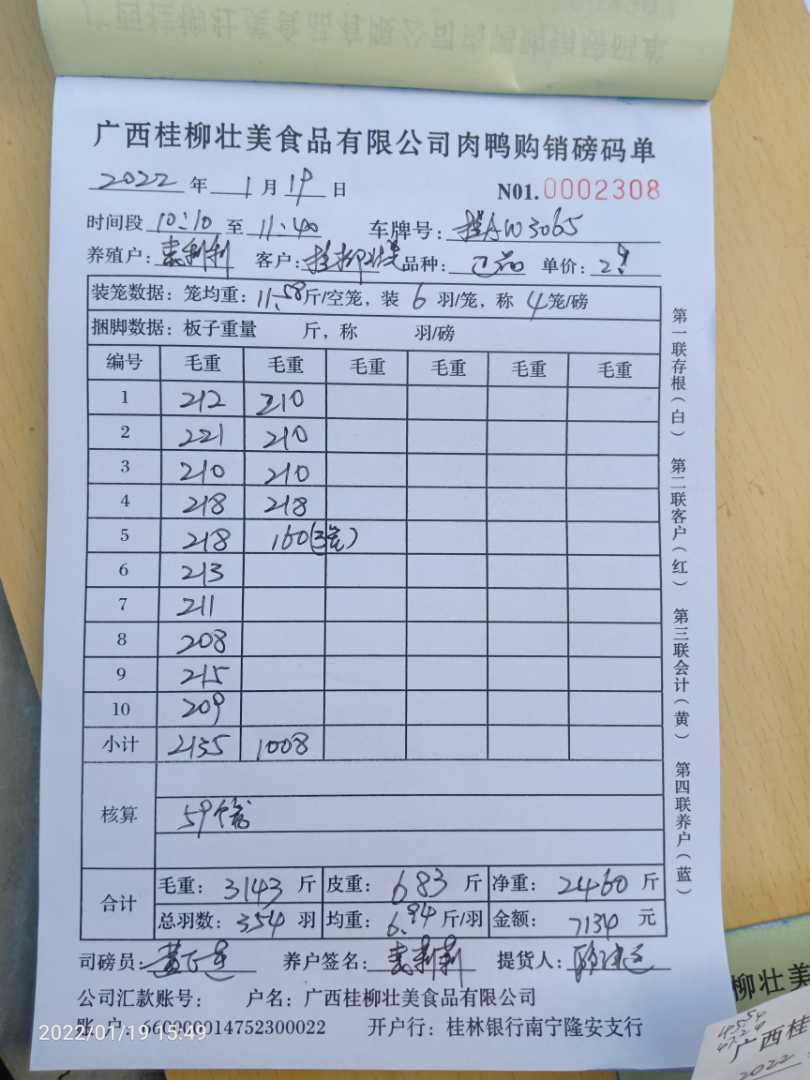 广西桂柳壮美食品有限公司肉鸭购销磅码单
2022 年 1 月 19 日 N01.0002308
时间段 10:10 至 11:40 车牌号: 桂AW3065
养殖户: 客户: 桂柳壮美 品种: 单价: 2.9
装笼数据: 笼均重: 11.58 斤/空笼, 装 6 羽/笼, 称 4 笼/磅
捆脚数据: 板子重量 斤, 称 羽/磅
编号 毛重 毛重 毛重 毛重 毛重 毛重
1 212 210
2 221 210
3 210 210
4 218 218
5 218 160(3笼)
6 213
7 211
8 208
9 215
10 209
小计 2135 1008
核算 59个笼
合计 毛重: 3143 斤 皮重: 683 斤 净重: 2460 斤
总羽数: 354 羽 均重: 6.94 斤/羽 金额: 7134 元
司磅员: 养户签名: 提货人:
公司汇款账号: 户名: 广西桂柳壮美食品有限公司
账 户: 660200014752300022 开户行: 桂林银行南宁隆安支行
第一联存根(白) 第二联客户(红) 第三联会计(黄) 第四联养户(蓝)
2022/01/19 15:49
柳壮美
广西桂
2022